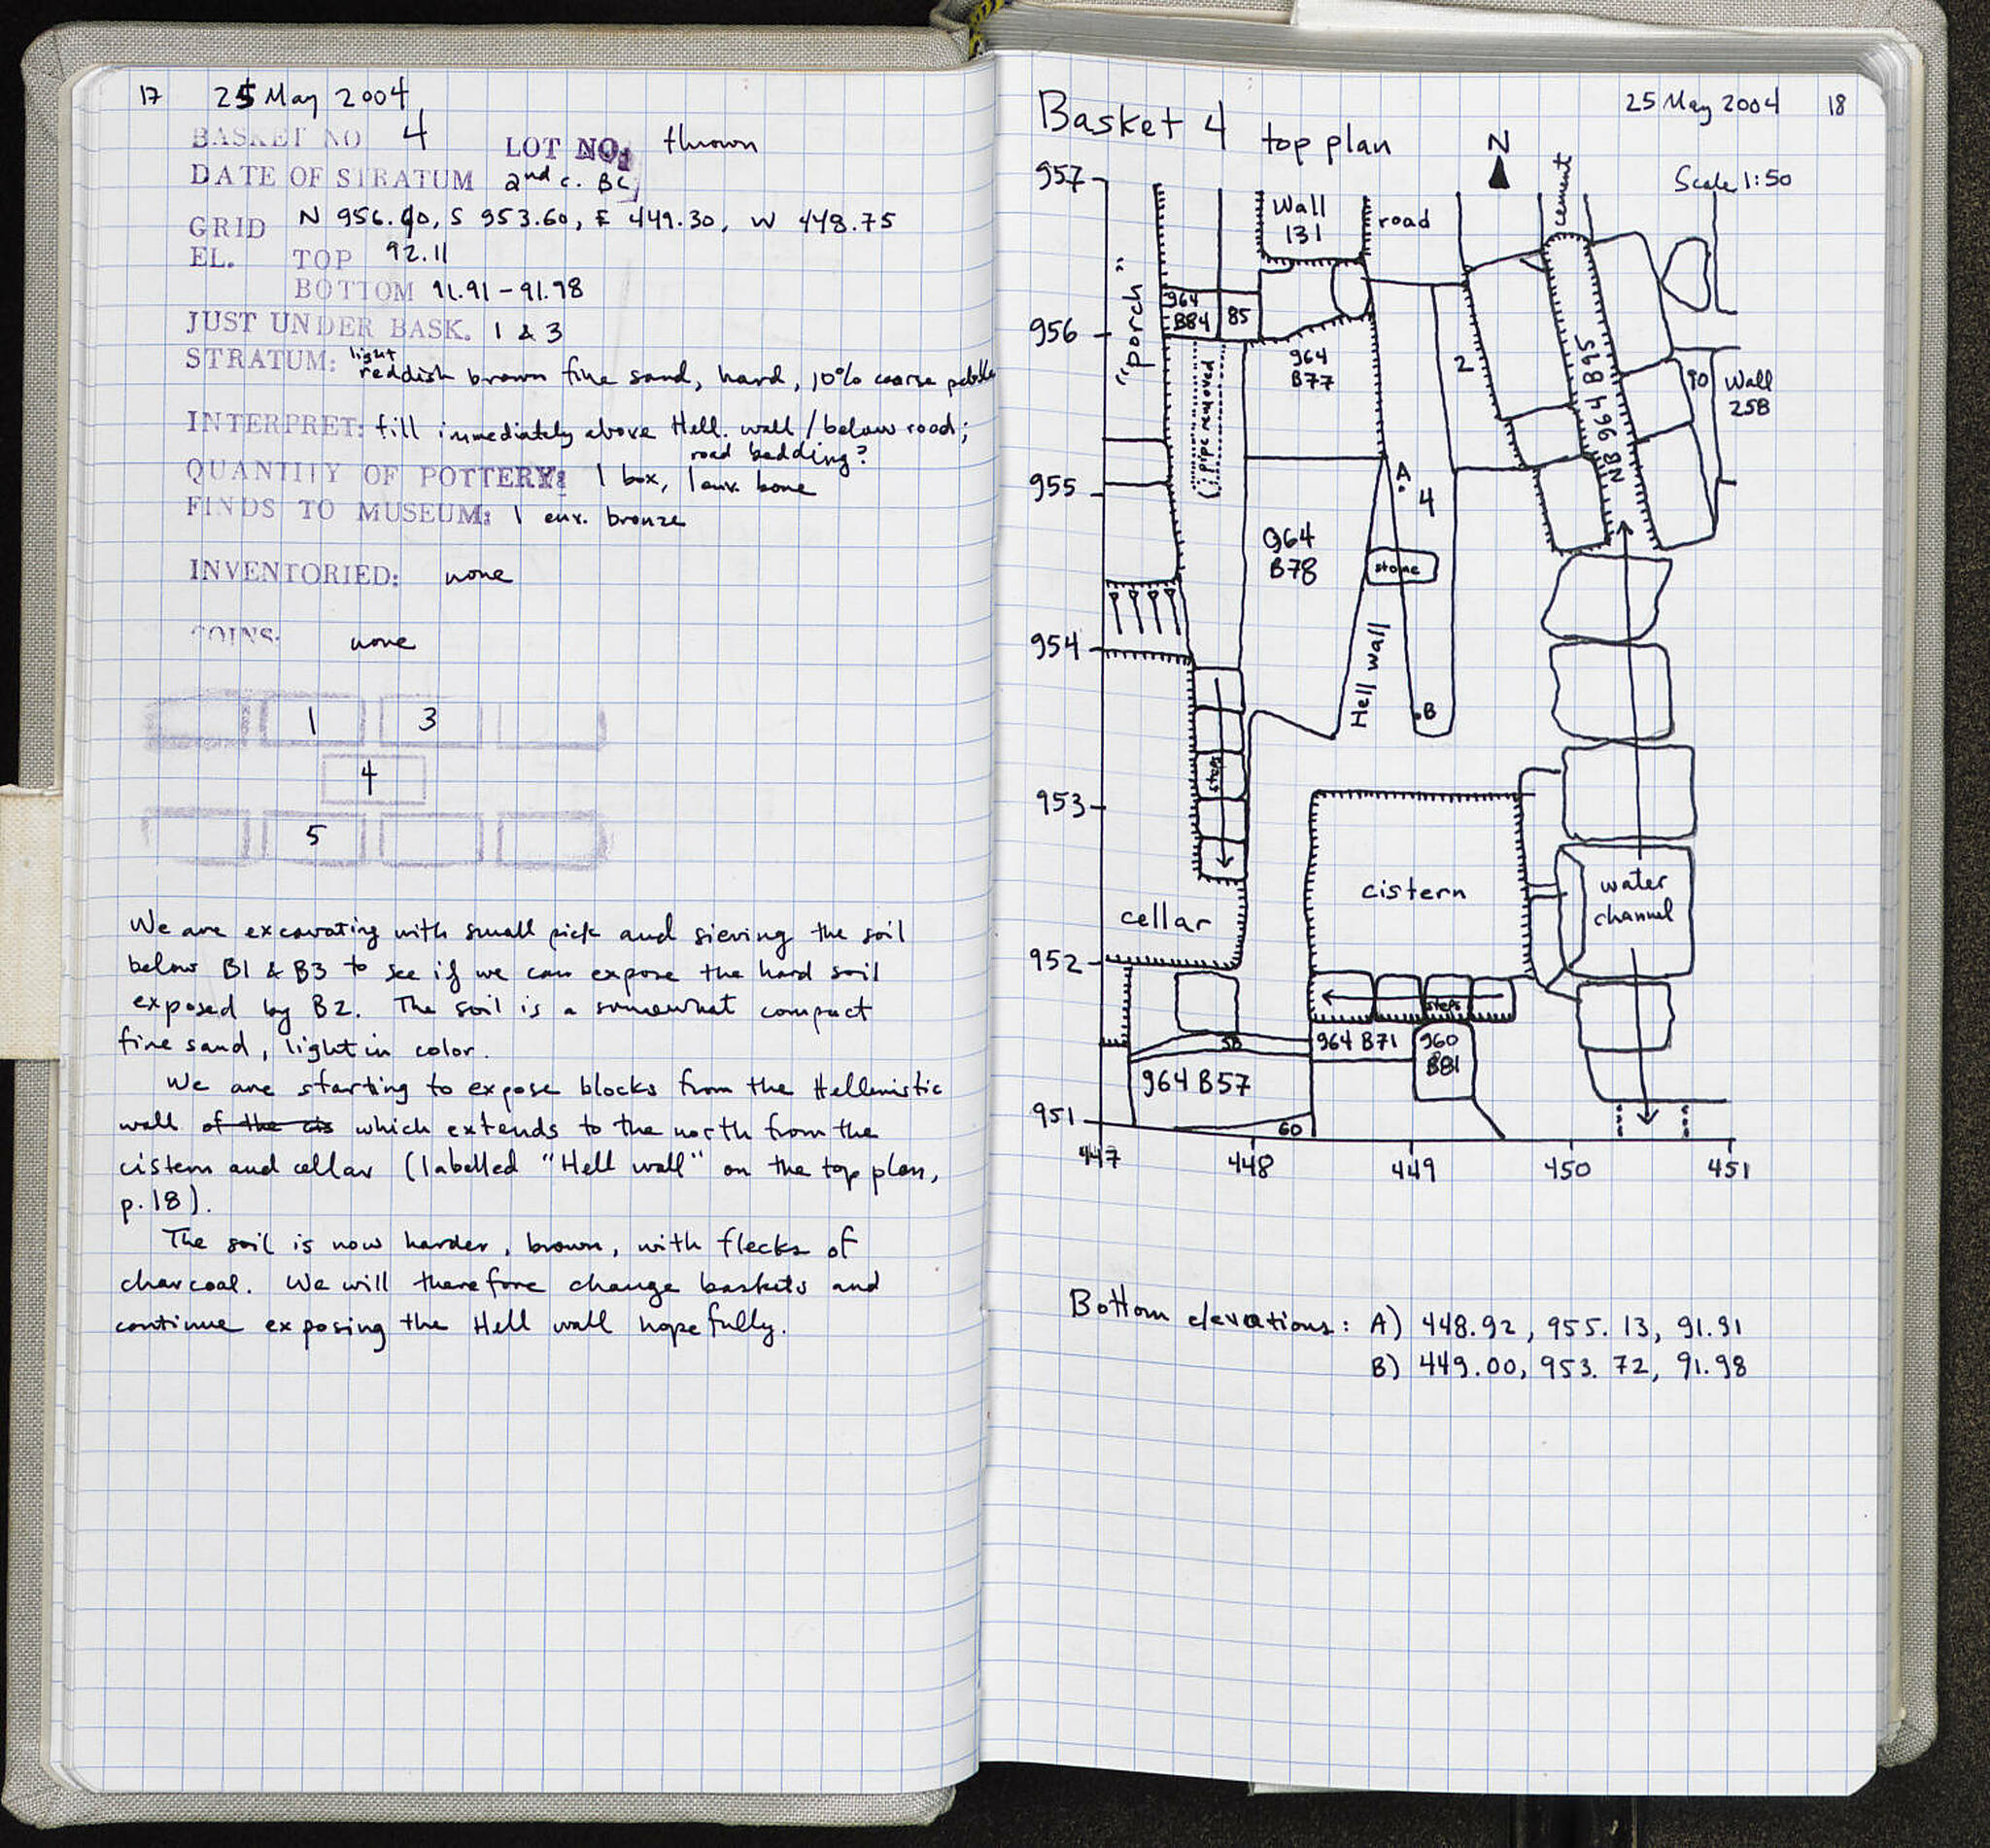 17 25 May 2004
BASKET NO 4 LOT NO: thrown
DATE OF STRATUM 2nd c. BC
GRID N 956.40, S 953.60, E 449.30, W 448.75
EL. TOP 92.11
BOTTOM 91.91 - 91.98
JUST UNDER BASK. 1 & 3
STRATUM: light reddish brown fine sand, hard, 10% coarse pebble
INTERPRET: fill immediately above Hell. wall / below road;
road bedding?
QUANTITY OF POTTERY: 1 box, 1 env. bone
FINDS TO MUSEUM: 1 env. bronze
INVENTORIED: none
COINS: none
1 3
4
5
We are excavating with small pick and sieving the soil
below B1 & B3 to see if we can expose the hard soil
exposed by B2. The soil is a somewhat compact
fine sand, light in color.
We are starting to expose blocks from the Hellenistic
wall of the cis which extends to the north from the
cistern and cellar (labelled "Hell wall" on the top plan,
p. 18).
The soil is now harder, brown, with flecks of
charcoal. We will therefore change baskets and
continue exposing the Hell wall hopefully.
25 May 2004 18
Basket 4 top plan
N
Scale 1:50
cement
957
Wall
131
road
"porch"
964
B84
85
956
964
B77
2
NB 964 B95
90
Wall
258
(pipe removed)
955
A
4
964
B78
stone
954
Hell wall
B
steps
953
cistern
cellar
water
channel
952
steps
58
964 B71
960
B81
964 B57
951
60
447 448 449 450 451
Bottom elevations: A) 448.92, 955.13, 91.91
B) 449.00, 953.72, 91.98